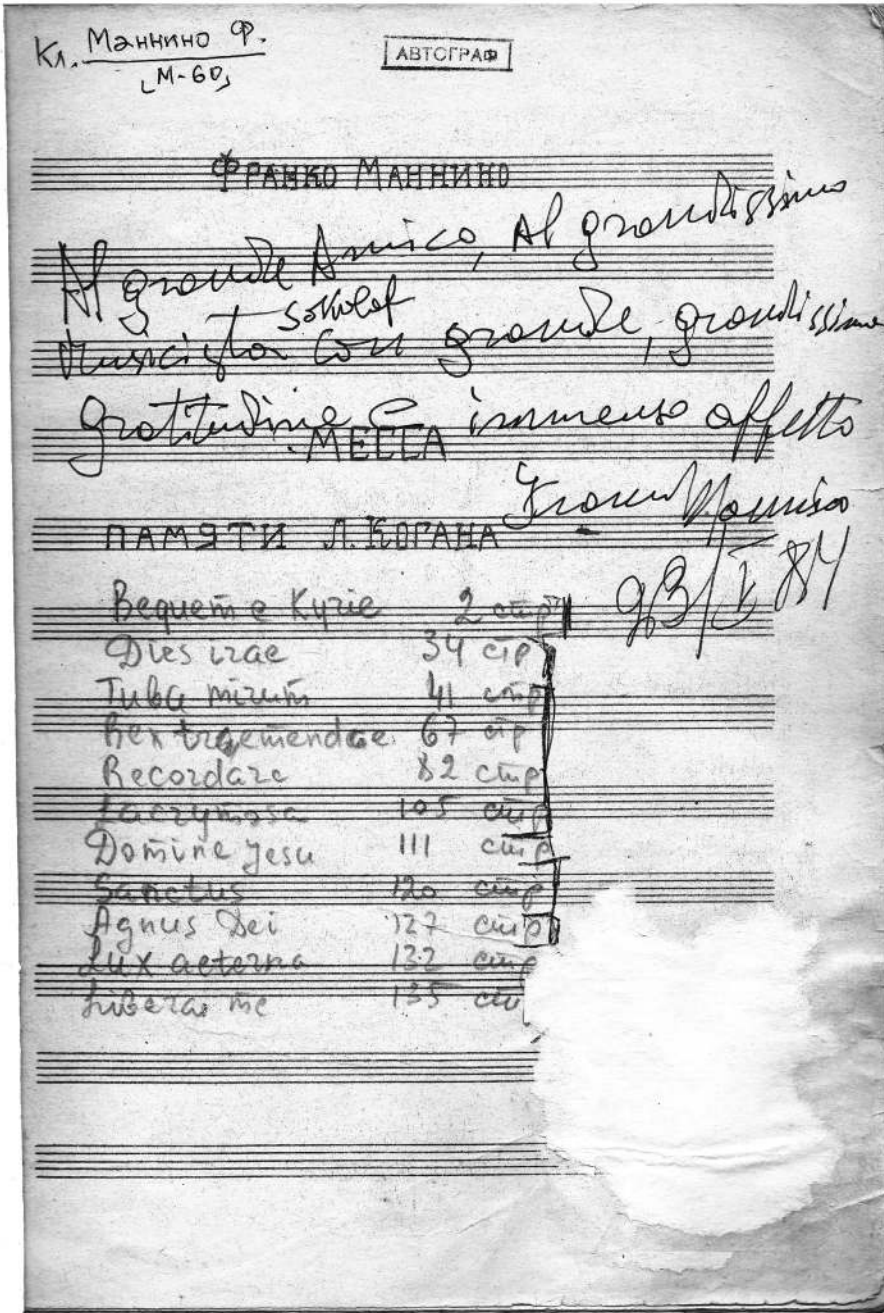 Кл. Маннино Ф.
[М-60]
АВТОГРАФ
ФРАНКО МАННИНО
Al grande Amico, Al grandissimo
Musicista Sokolof con grande, grandissima
gratitudine e immenso affetto
МЕССА
Franco Mannino
ПАМЯТИ Л. КОГАНА
23/V 84
Requem e Kyrie 2 стр
Dies irae 34 стр
Tuba mirum 41 стр
Rex traemendae 67 стр
Recordare 82 стр
Lacrymosa 105 стр
Domine Jesu 111 стр
Sanctus 120 стр
Agnus Dei 127 стр
Lux aeterna 132 стр
Liberas me 135 ст